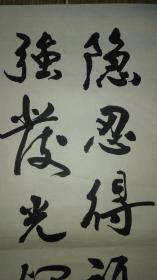 隐忍得
強發光